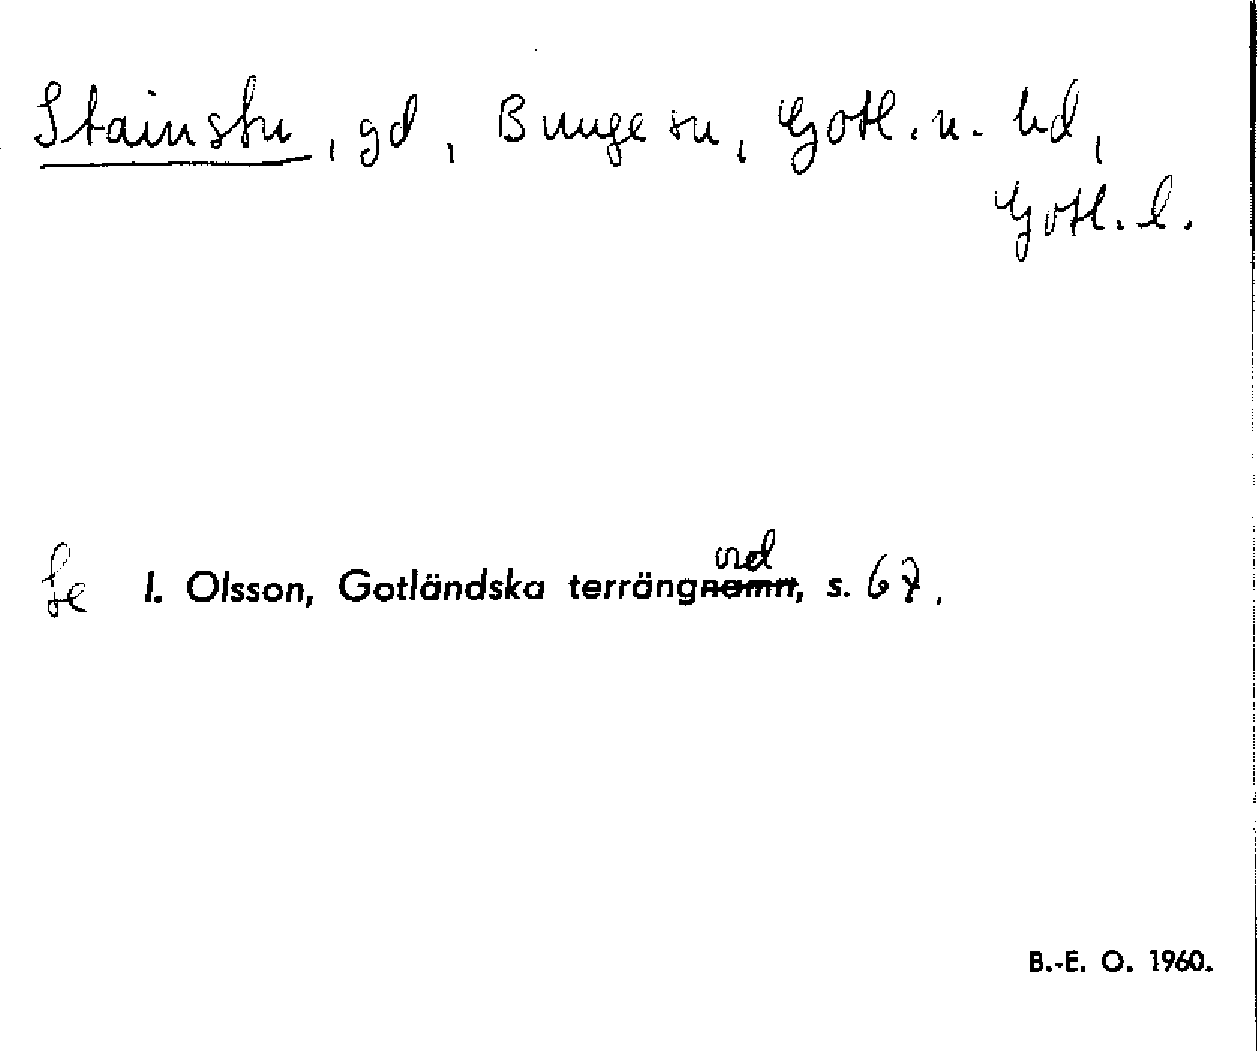 Stainstu, gd, Bunge sn, Gotl. n. hd,
Gotl. l.
Se I. Olsson, Gotländska terrängnamn, s. 67.
ord
B.-E. O. 1960.